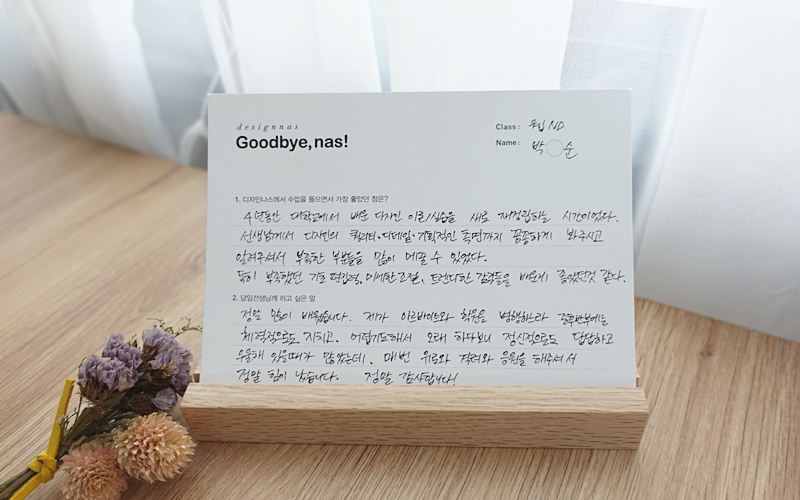 designnas
Goodbye, nas!
Class: 웹 ND
Name: 박 순
1. 디자인나스에서 수업을 들으면서 가장 좋았던 점은?
4년동안 대학교에서 배운 디자인 이론/실습을 새로 재정립하는 시간이었다.
선생님께서 디자인의 퀄리티·디테일·기획적인 측면까지 꼼꼼하게 봐주시고
알려주셔서 부족한 부분들을 많이 메꿀 수 있었다.
특히 부족했던 기초 편집력, 미세한 조정, 트렌디한 감각들을 배운게 좋았던것 같다.
2. 담임선생님께 하고 싶은 말
정말 많이 배웠습니다. 제가 아르바이트와 학원을 병행하느라 중후반부에는
체력적으로도 지치고, 어렵기도해서 오래 하다보니 정신적으로도 답답하고
우울해 있을때가 많았는데, 매번 위로와 격려와 응원을 해주셔서
정말 힘이 났습니다. 정말 감사합니다!